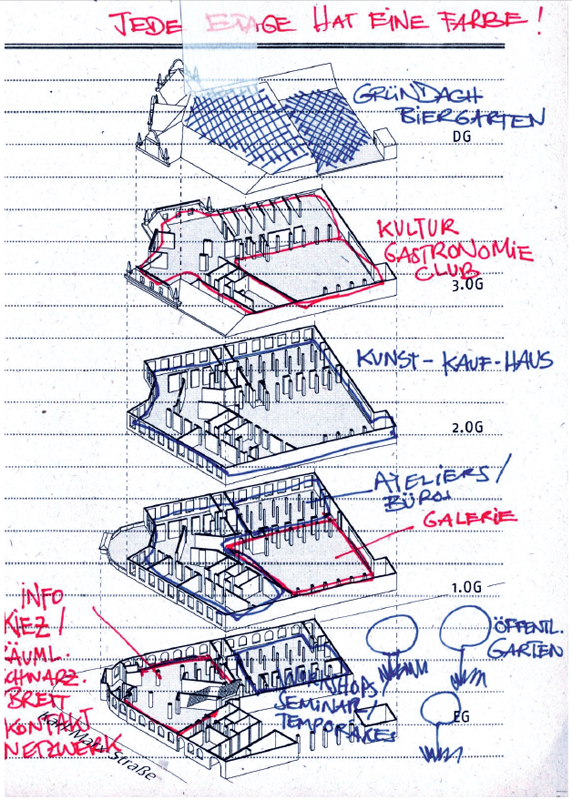 JEDE ETAGE HAT EINE FARBE!
GRÜNDACH
BIERGARTEN
DG
KULTUR
GASTRONOMIE
CLUB
3.OG
KUNST-KAUF-HAUS
2.OG
ATELIERS/
BÜROS
GALERIE
1.OG
INFO
KIEZ/
ÄUML.
CHWARZ.
BRETT
KONTAKT
NETZWERK
Karl-Marx-Straße
SHOPS/
SEMINAR/
TEMPORÄRES
EG
ÖFFENTL.
GARTEN